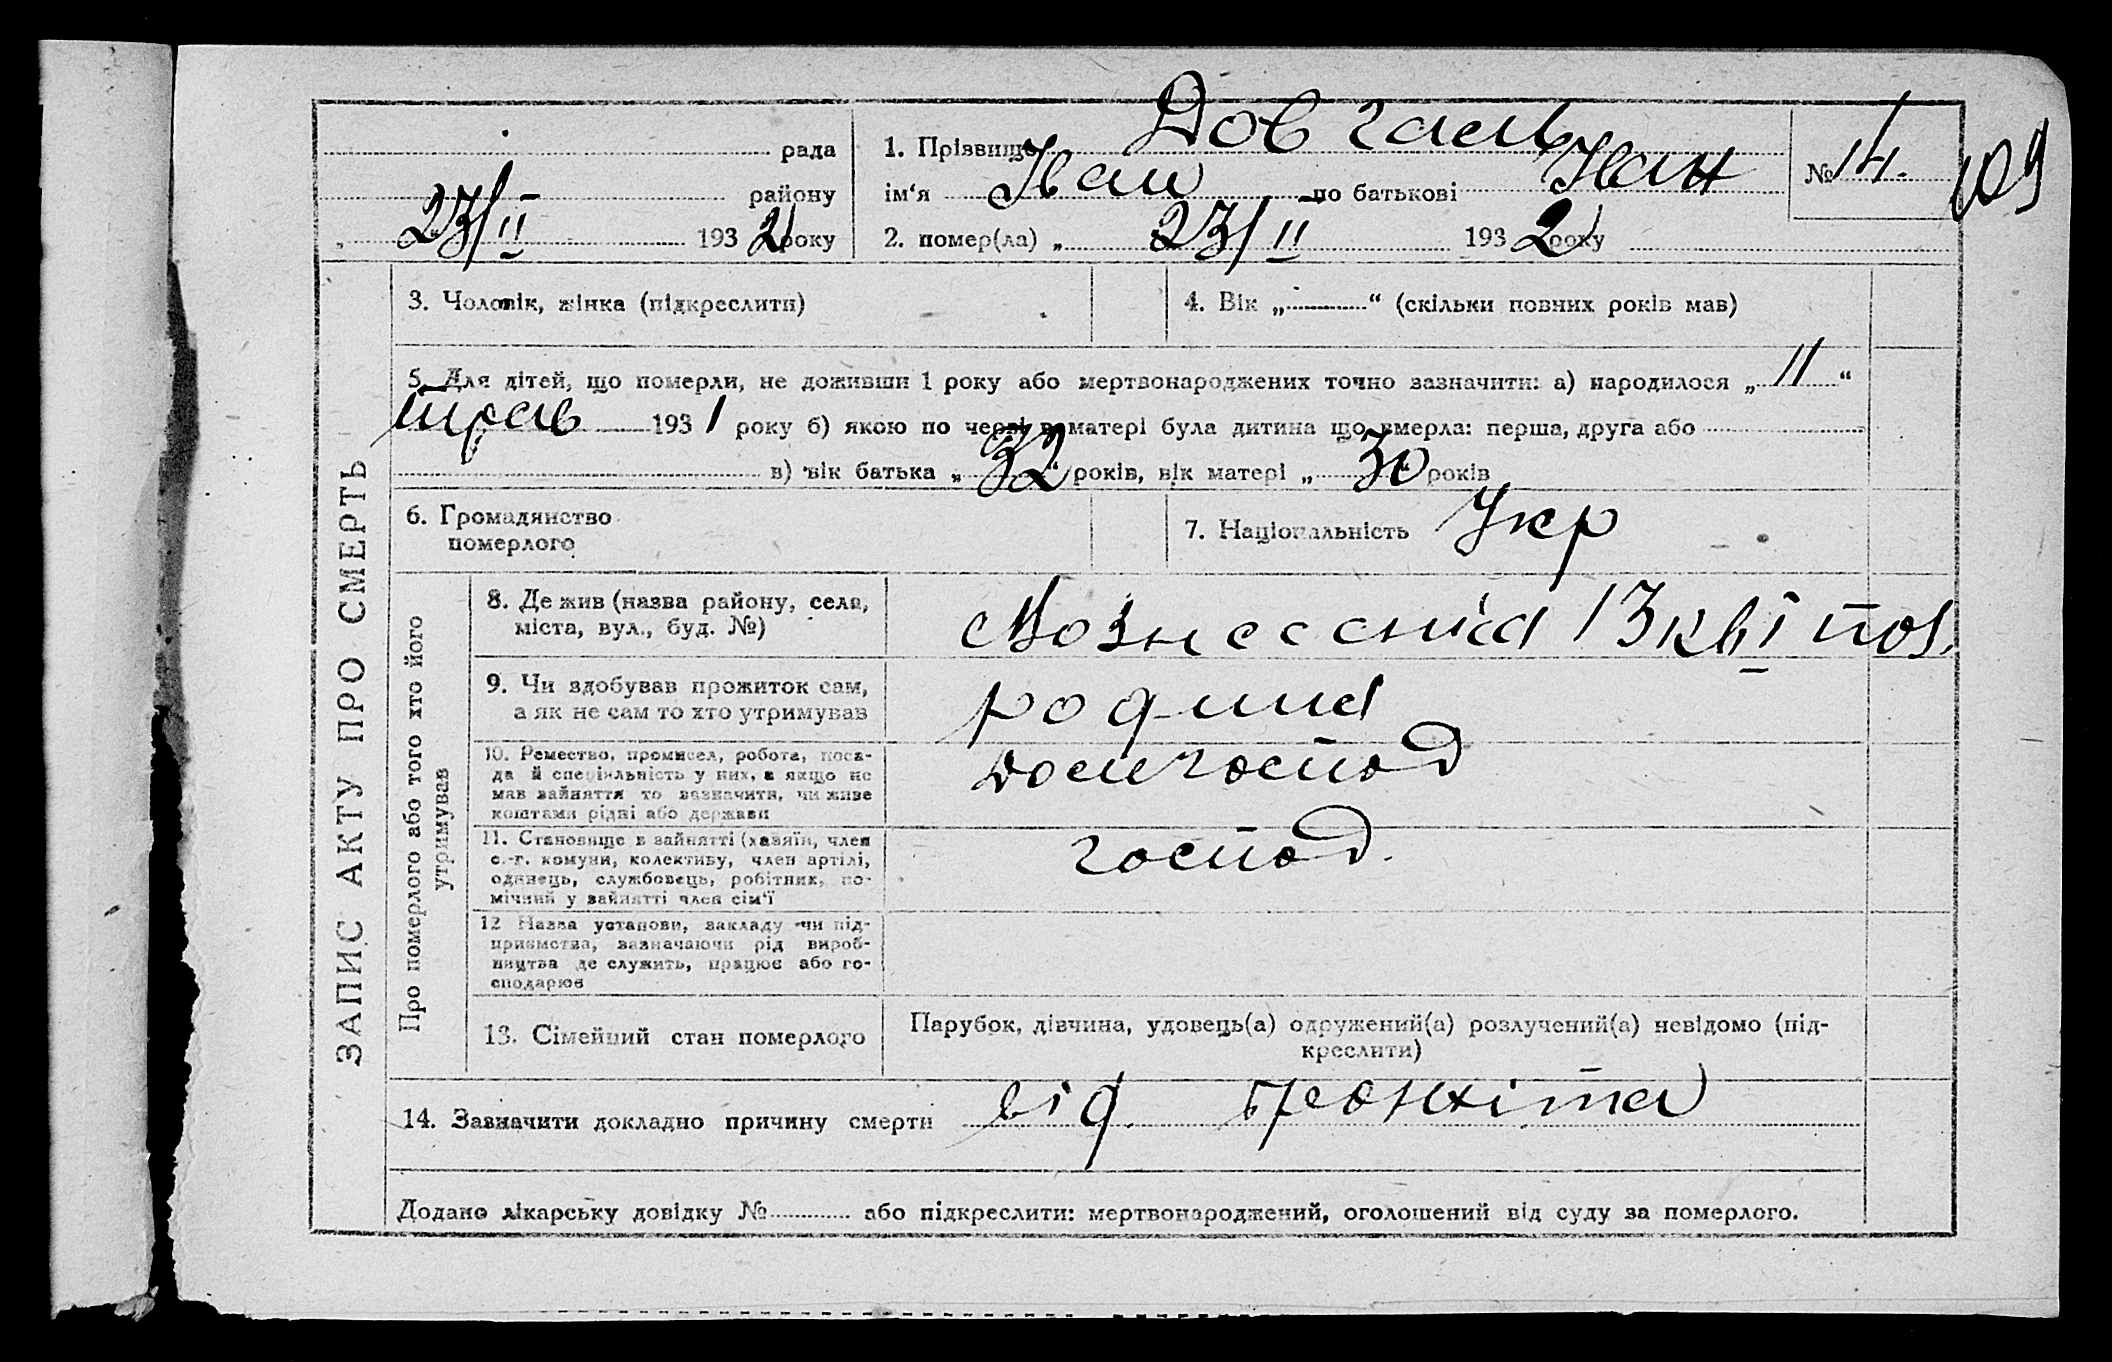 ЗАПИС АКТУ ПРО СМЕРТЬ
рада
району
„ 23/II 1932 року
1. Прізвище Довгаль
ім‘я Іван по батькові Іван
2. помер(ла) „ 23/II 1932 року
№ 14.
109
3. Чоловік, жінка (підкреслити)
4. Вік „ “ (скільки повних років мав)
5. Для дітей, що померли, не доживши 1 року або мертвонароджених точно зазначити: а) народилося „ 11 “
трав 1931 року б) якою по черзі в матері була дитина що вмерла: перша, друга або
в) вік батька „ 32 “ років, вік матері „ 30 “ років
6. Громадянство
померлого
7. Національність Укр
Про померлого або того хто його
утримував
8. Де жив (назва району, села,
міста, вул., буд. №)
13
9. Чи здобував прожиток сам,
а як не сам то хто утримував
родина
10. Ремество, промисел, робота, поса-
да й спеціяльність у них, а якщо не
мав зайняття то зазначити, чи живе
коштами рідні або держави
домгоспод
11. Становище в зайнятті (хазяїн, член
с.-г. комуни, колективу, член артілі,
одинець, службовець, робітник, по-
мічний у зайнятті член сім‘ї
господ.
12 Назва установи, закладу чи під-
приємства, зазначаючи рід вироб-
ництва де служить, працює або го-
сподарює
13. Сімейний стан померлого
Парубок, дівчина, удовець(а) одружений(а) розлучений(а) невідомо (під-
креслити)
14. Зазначити докладно причину смерти від бронхіта
Додано лікарську довідку № або підкреслити: мертвонароджений, оголошений від суду за померлого.